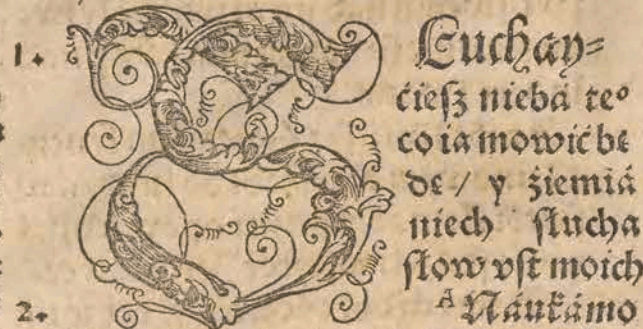 1. SŁuchay=
ćieſz niebá te°
co ia mowić bę
dę / y źiemiá
niech ſłucha
ſłow vſt moich
2. A Náuká mo